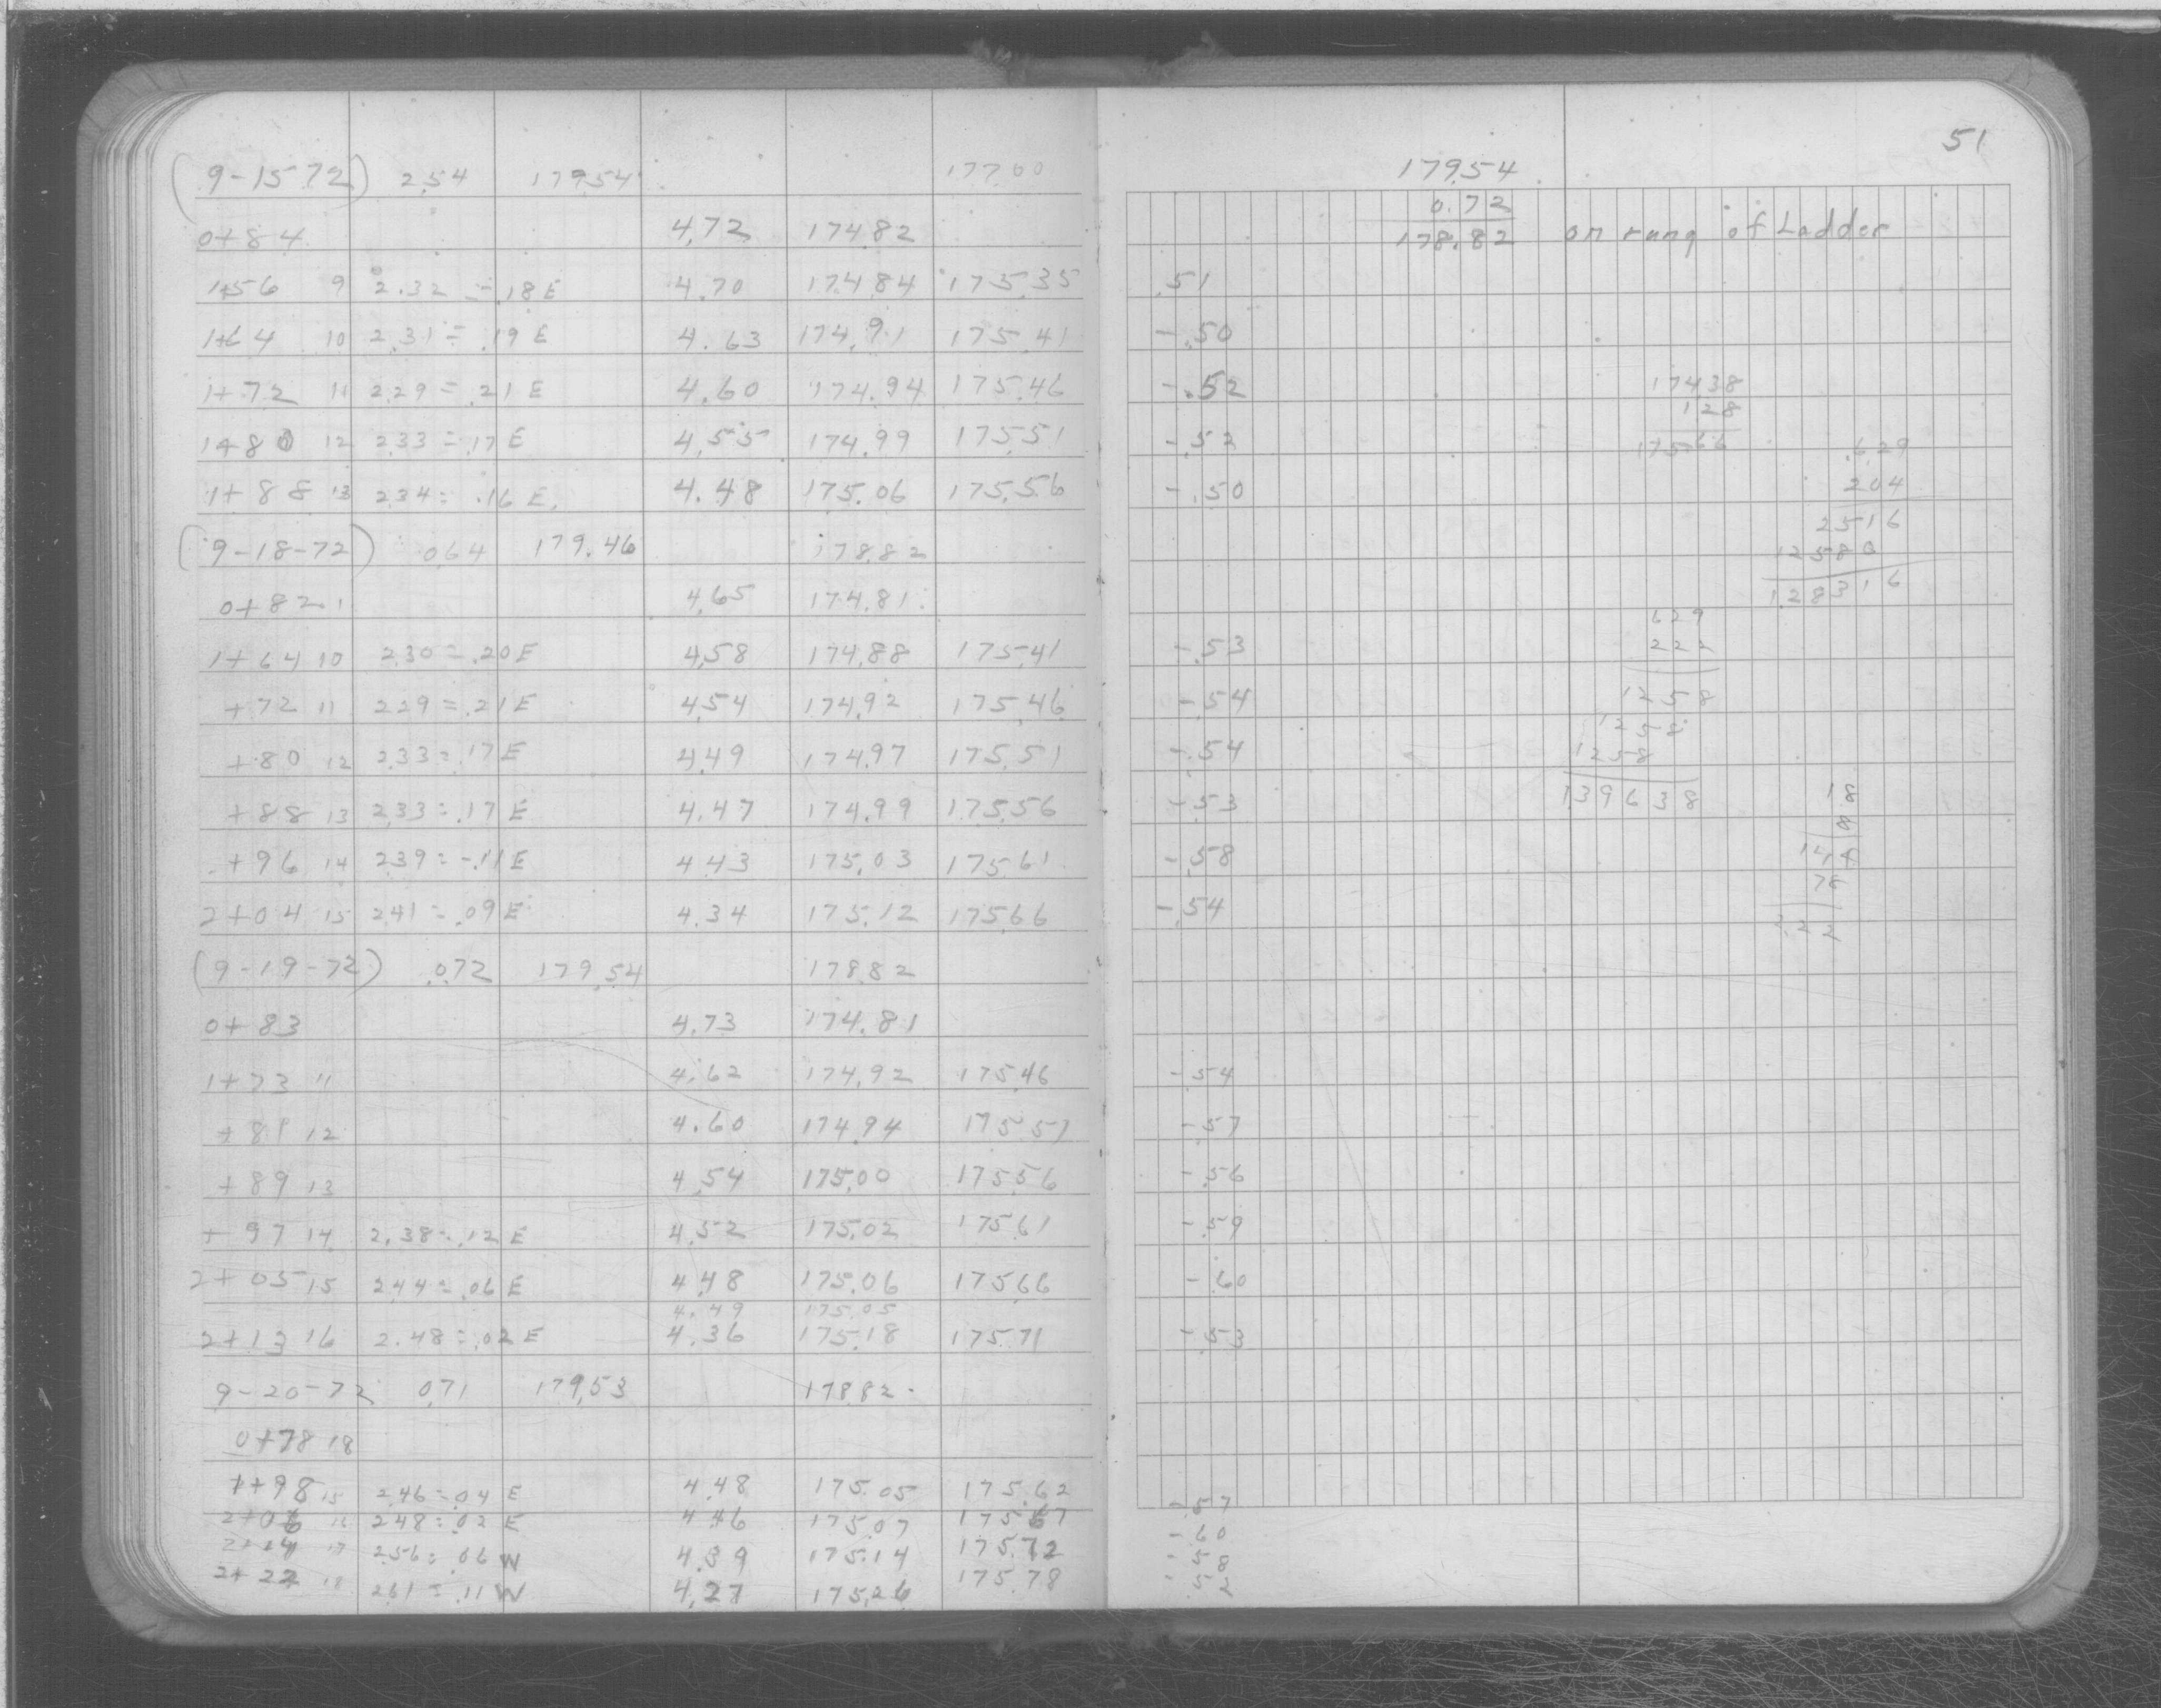 51
(9-15-72) 2.54 179.54 177.00
0+84 4.72 174.82
1+56 9 2.32 = .18 E 4.70 174.84 175.35 .51
1+64 10 2.31 = .19 E 4.63 174.91 175.41 -.50
1+72 11 2.29 = .21 E 4.60 174.94 175.46 -.52
1+80 12 2.33 = .17 E 4.55 174.99 175.51 -.52
1+88 13 2.34 = .16 E. 4.48 175.06 175.56 -.50
(9-18-72) 0.64 179.46 178.82
0+82 4.65 174.81
1+64 10 2.30 = .20 E 4.58 174.88 175.41 -.53
+72 11 2.29 = .21 E 4.54 174.92 175.46 -.54
+80 12 2.33 = .17 E 4.49 174.97 175.51 -.54
+88 13 2.33 = .17 E 4.47 174.99 175.56 -.53
+96 14 2.39 = -.11 E 4.43 175.03 175.61 -.58
2+04 15 2.41 = .09 E 4.34 175.12 175.66 -.54
(9-19-72) .072 179.54 178.82
0+83 4.73 174.81
1+73 11 4.62 174.92 175.46 -.54
+81 12 4.60 174.94 175.51 -.57
+89 13 4.54 175.00 175.56 -.56
+97 14 2.38 = .12 E 4.52 175.02 175.61 -.59
2+05 15 2.44 = .06 E 4.48 175.06 175.66 -.60
4.49 175.05
2+13 16 2.48 = .02 E 4.36 175.18 175.71 -.53
9-20-72 0.71 179.53 178.82
0+78 18
1+98 15 2.46 = .04 E 4.48 175.05 175.62 -.57
2+06 16 2.48 = .02 E 4.46 175.07 175.67 -.60
2+14 17 2.56 = .06 W 4.39 175.14 175.72 -.58
2+22 18 2.61 = .11 W 4.27 175.26 175.78 -.52
179.54
0.72
178.82 on rung of Ladder
174.38
1.28
175.66
.629
204
2516
12580
1.28316
629
222
1258
1258
1258
139638
18
8
144
78
2.22